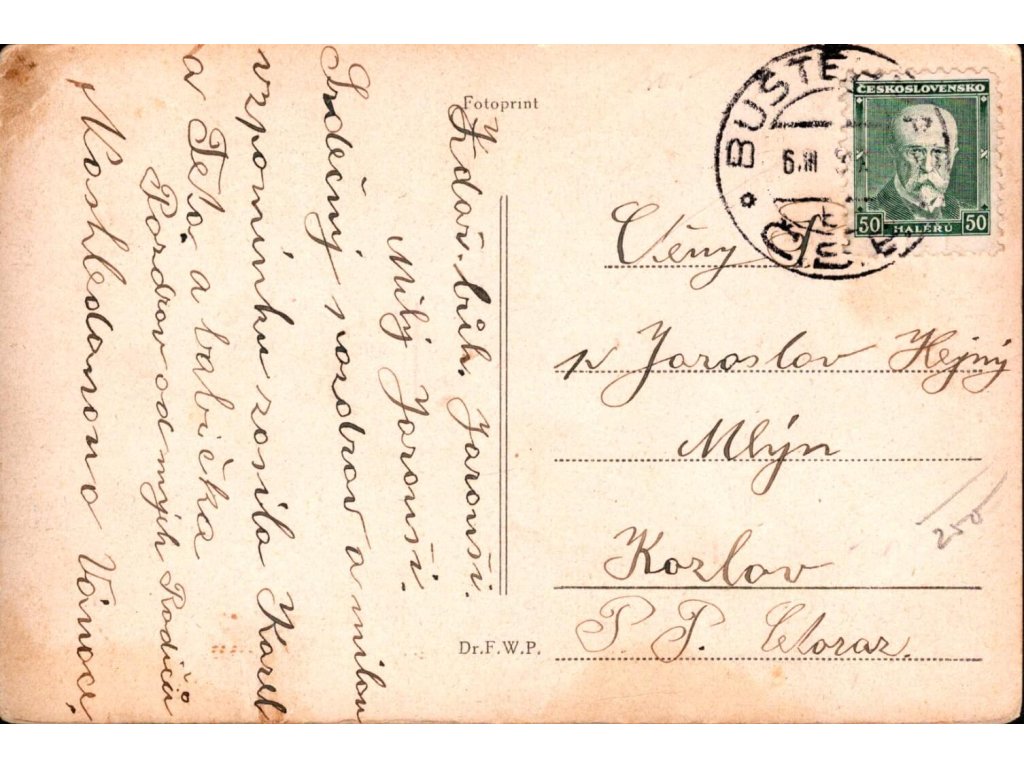 Fotoprint
Zdoř. bůh. Jarouši.
Milý Jarouši.
Srdečný pozdrav a milou
vzpomínku zasila Karel
a Teta a babička
Pozdrav od mých Rodičů
Nashledanono Vánoce.
Dr. F. W. P.
BUŠTĚ
6.III
ČESKOSLOVENSKO
50 HALÉŘŮ 50
Ctěny
p Jaroslav Hejný
Mlýn
Kozlov
P. P. Choraz.
250